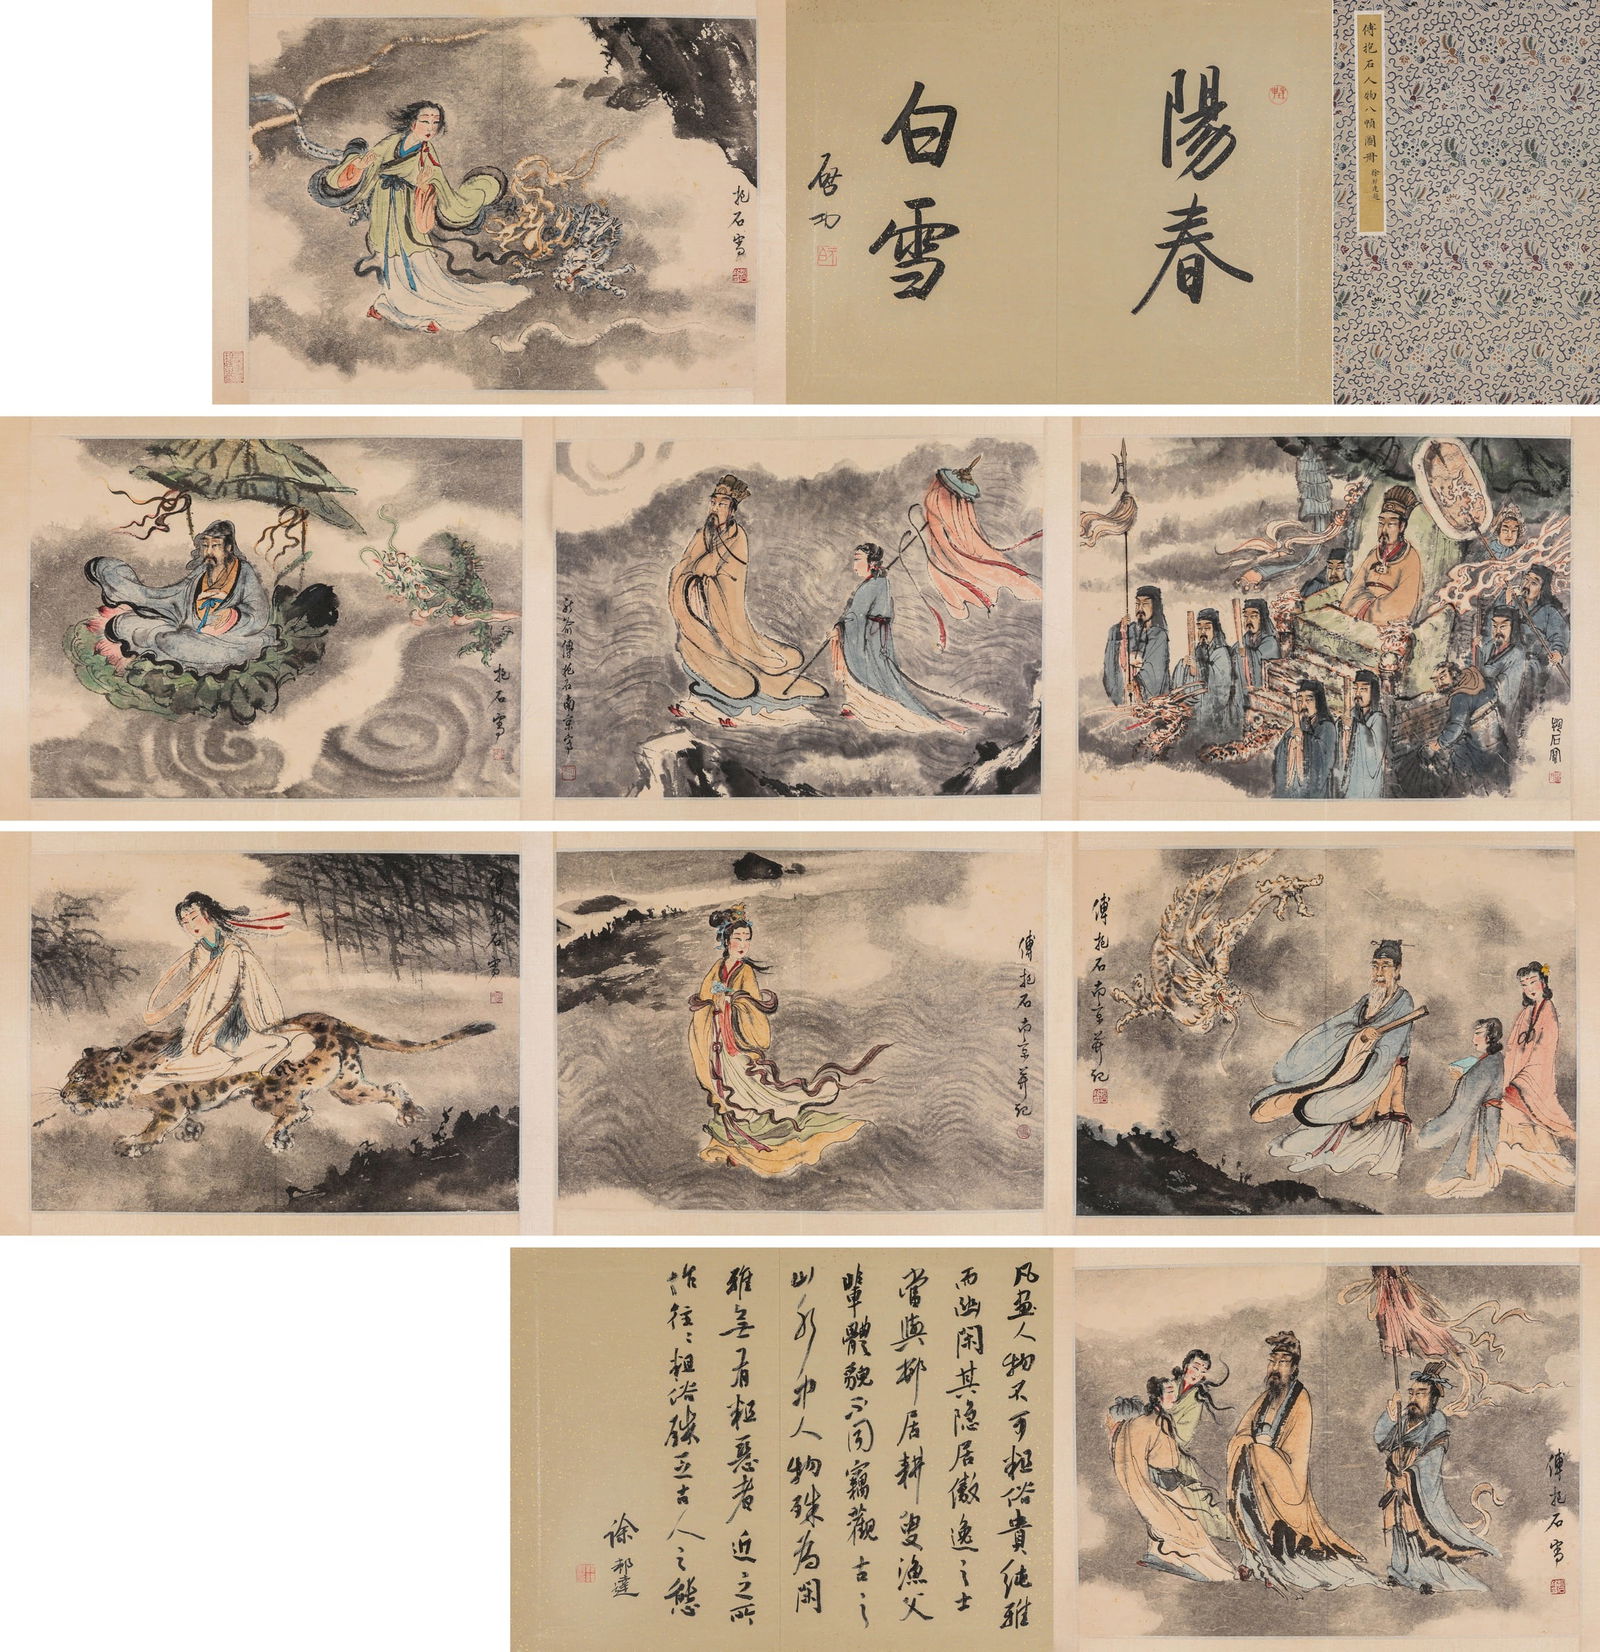 傅抱石人物八幀圖冊
徐邦達題
陽春
白雪
啓功
抱石寫
抱石寫
新喻傅抱石南京寫
抱石寫
傅抱石南京并記
傅抱石南京并記
傅抱石寫
傅抱石寫
凡畫人物不可粗俗貴純雅
而幽閑其隐居傲逸之士
當與邨居耕叟漁父
輩體貌不同竊觀古之
山水中人物殊為閑
雅無有粗惡者近之所
作往往粗俗殊乏古人之態
徐邦達